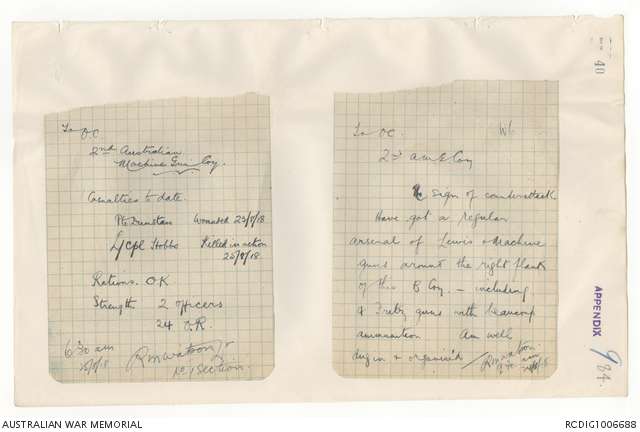 To O.C
2nd Australian
Machine Gun Coy.
Casualties to date.
Pte Dunstan Wounded 23/8/18
L/Cpl Hobbs Killed in action
25/8/18
Rations. O.K
Strength 2 Officers
24 O.R.
6.30 am
RMWatson
No 1 Section.
To O.C.
Coy
sign of counterattack
Have got a regular
arsenal of Lewis & Machine
guns around the right flank
of this B Coy. — including
guns with beaucoup
ammunition. Am well
dug in & organised
40
APPENDIX
9
84.
AUSTRALIAN WAR MEMORIAL
RCDIG1006688